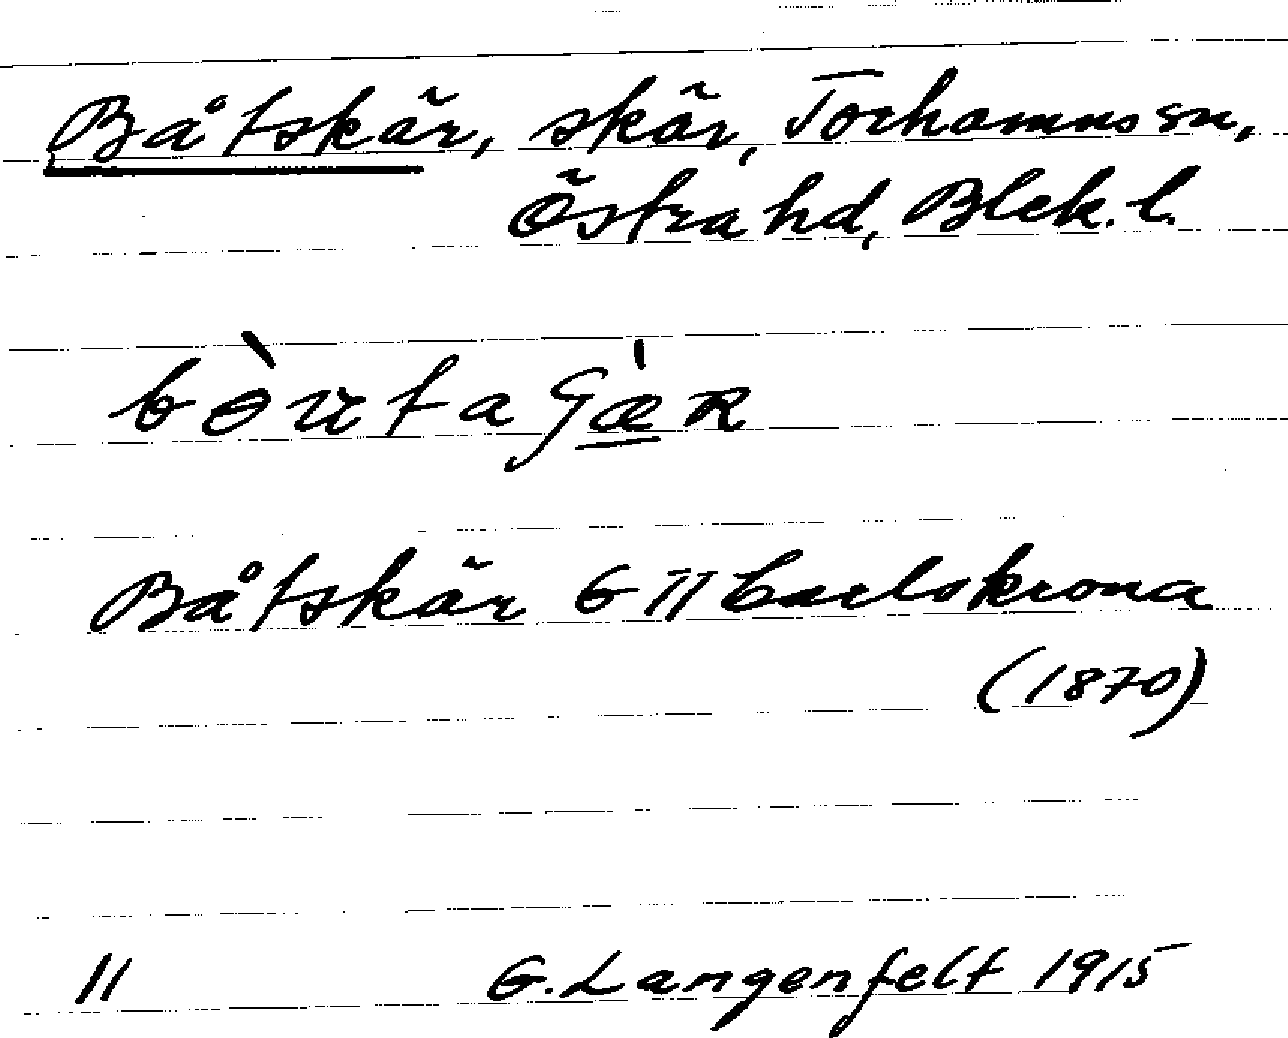 Båtskär, skär, Torhamns sn,
Östra hd, Blek. l.
bòutagæ̀R
Båtskär G II Carlskrona
(1870)
11 G. Langenfelt 1915